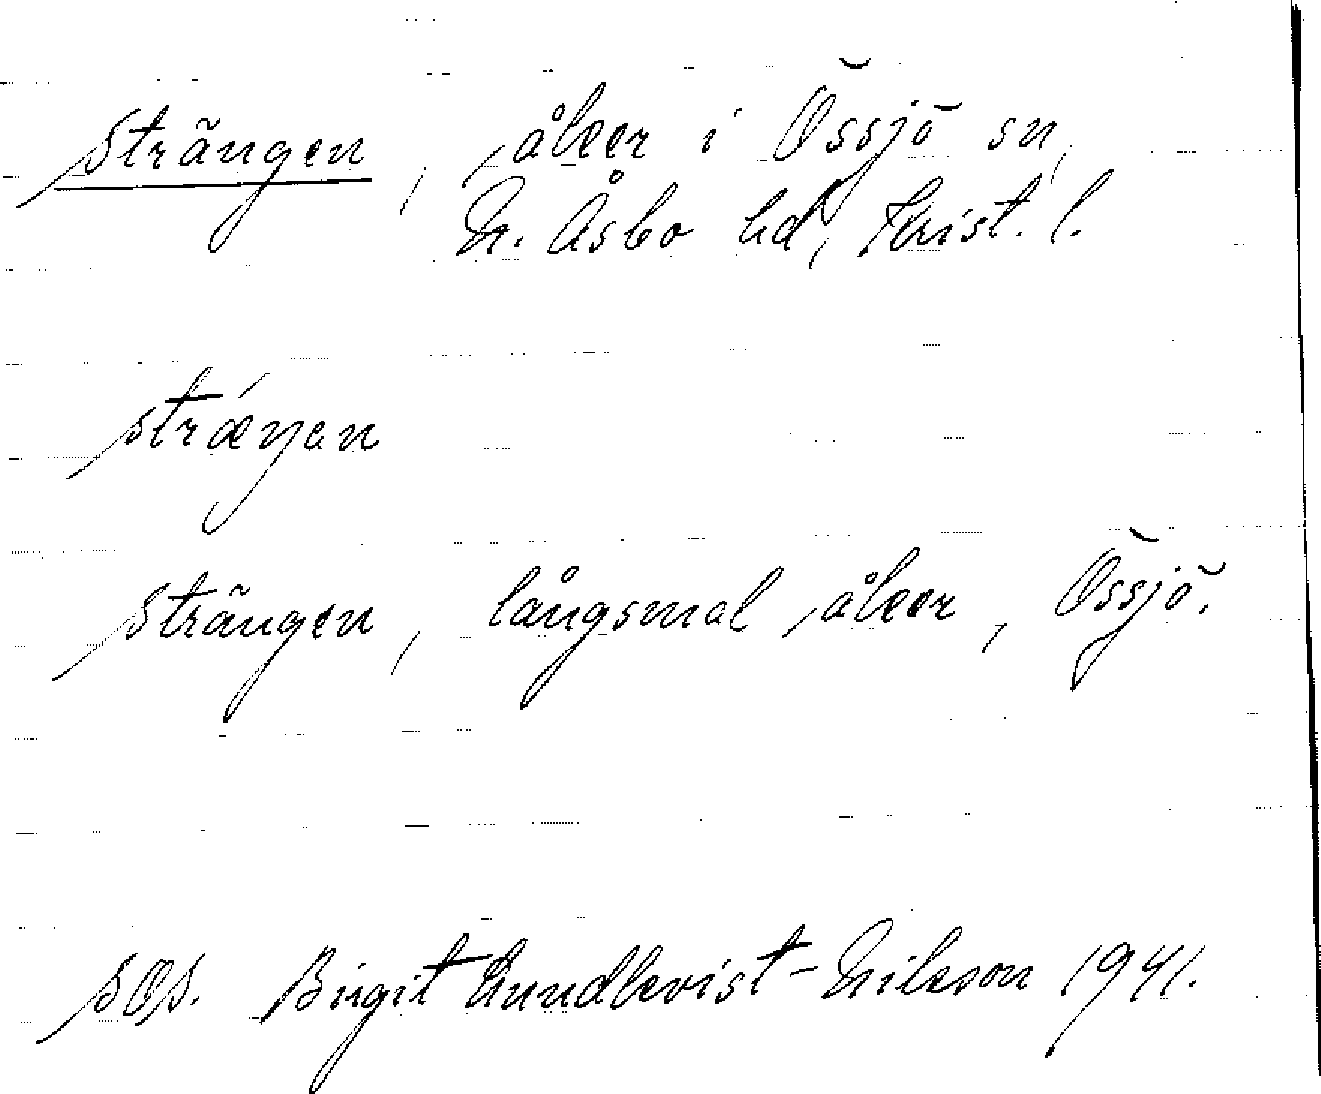 Strängen, åker i Össjö sn,
N. Åsbo hd, Krist. l.
stræŋən
Strängen, långsmal åker, Össjö.
SOS. Birgit Lundkvist-Nilsson 1941.